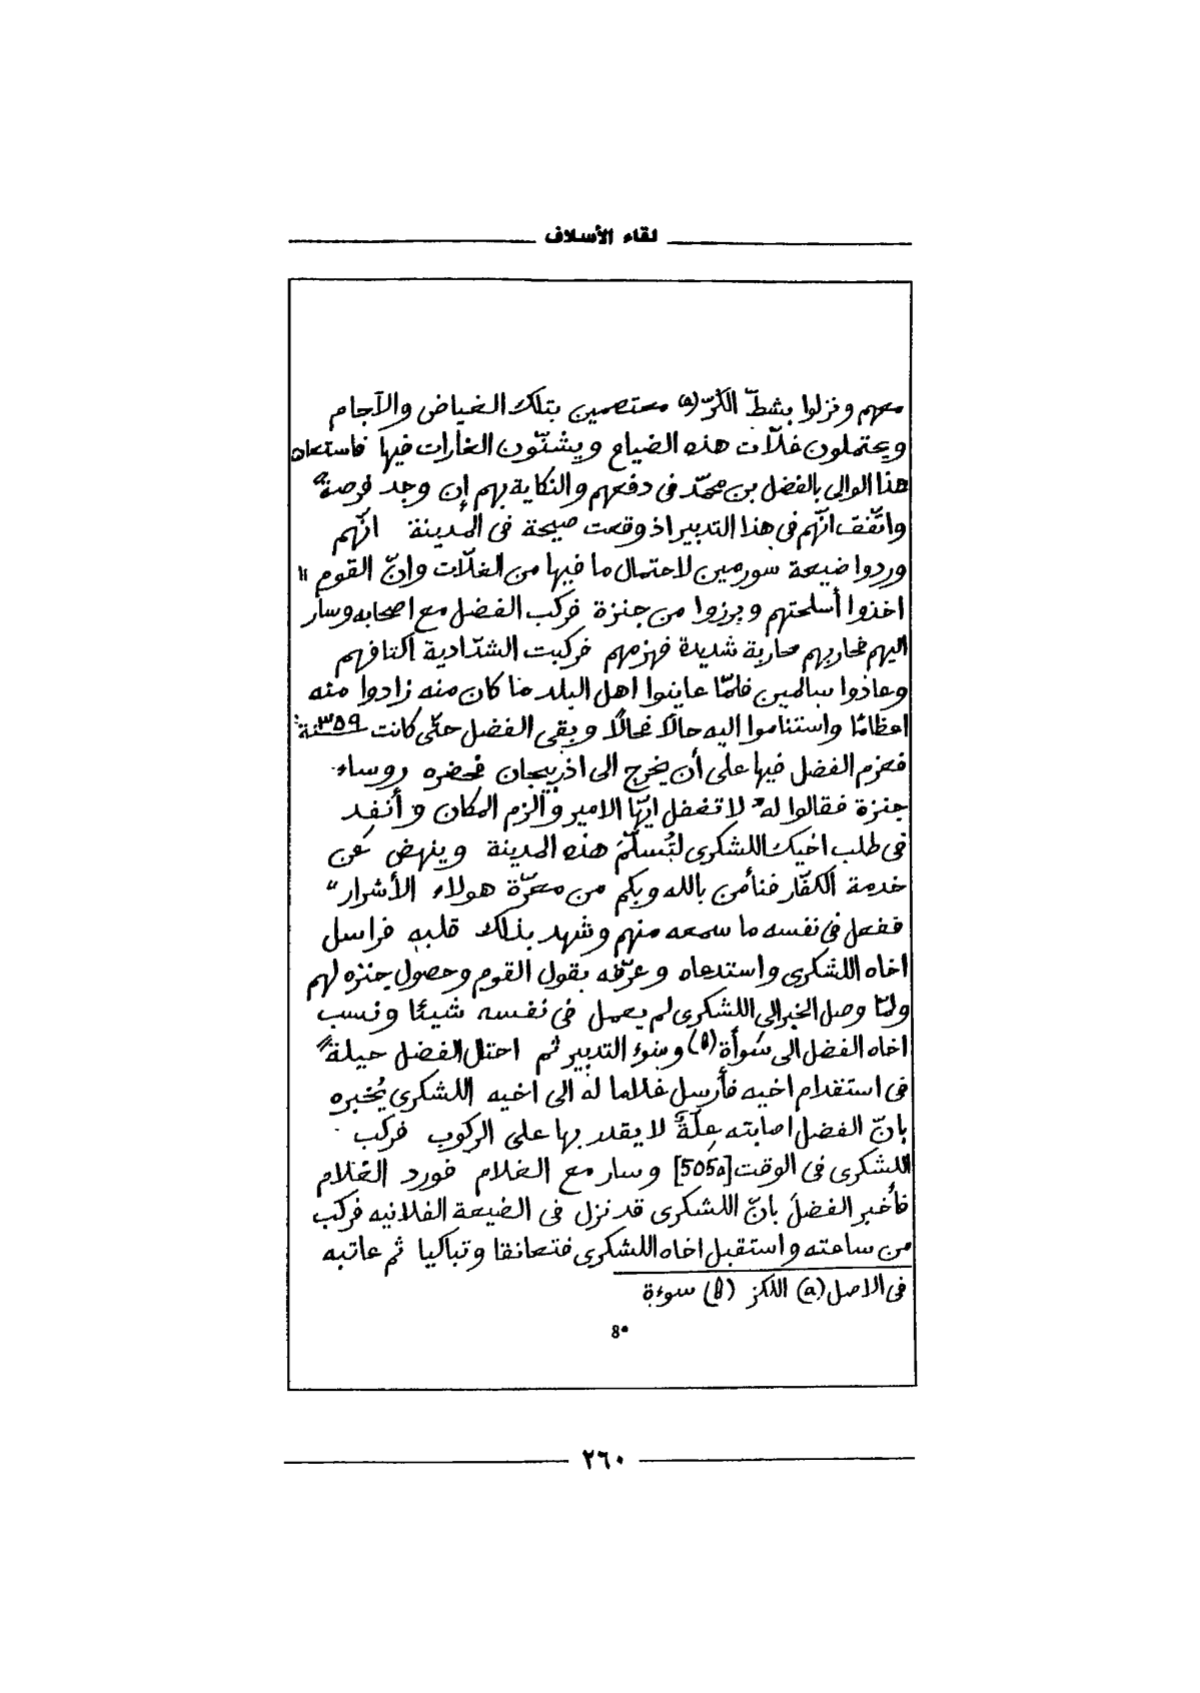 لقاء الأسلاف
معهم ونزلوا بشطّ الكُرّ (a) معتصمين بتلك الغياض والآجام
ويحتملون غلّات هذه الضياع ويشنّون الغارات فيها فاستعان
هذا الوالى بالفضل بن محمّد فى دفعهم والنكاية بهم إن وجد فرصةً
واتّفق انّهم فى هذا التدبير اذ وقعت صيحة فى المدينة انّهم
وردوا ضيعة سورمين لاحتمال ما فيها من الغلّات وانّ القوم "
اخذوا أسلحتهم وبرزوا من جنزة فركب الفضل مع اصحابه وسار
اليهم فحاربهم محاربة شديدة فهزمهم فركبت الشدّادية اكتافهم
وعادوا سالمين فلمّا عاينوا اهل البلد ما كان منه زادوا منه
اعظامًا واستناموا اليه حالًا فحالًا وبقى الفضل حتّى كانت سنة ٣٥٩
فعزم الفضل فيها على أن يخرج الى اذربيجان فحضره روساء
جنزة فقالوا له" لا تغفل ايّها الامير وألزم المكان وأنفِد
فى طلب اخيك اللشكرى لتُسلّمَ هذه المدينة وينهض عن
خدمة الكفّار فنأمن بالله وبكم من معرّة هولاء الأشرار"
ففعل فى نفسه ما سمعه منهم وشهد بذلك قلبه فراسل
اخاه اللشكرى واستدعاه وعرّفه بقول القوم وحصول جنزه لهم
ولمّا وصل الخبر الى اللشكرى لم يعمل فى نفسه شيئًا ونسب
اخاه الفضل الى سَوأة (b) وسوء التدبير ثم احتال الفضل حيلةً
فى استقدام اخيه فأرسل غلاما له الى اخيه اللشكرى يُخبره
بانّ الفضل اصابته عِلّةٌ لا يقدر بها على الركوب فركب
اللشكرى فى الوقت [505a] وسار مع الغلام فورد الغلام
فأخبر الفضلَ بانّ اللشكرى قد نزل فى الضيعة الفلانيه فركب
من ساعته واستقبل اخاه اللشكرى فتعانقا وتباكيا ثم عاتبه
فى الاصل (a) اللكز (b) سوءة
8•
٢٦٠